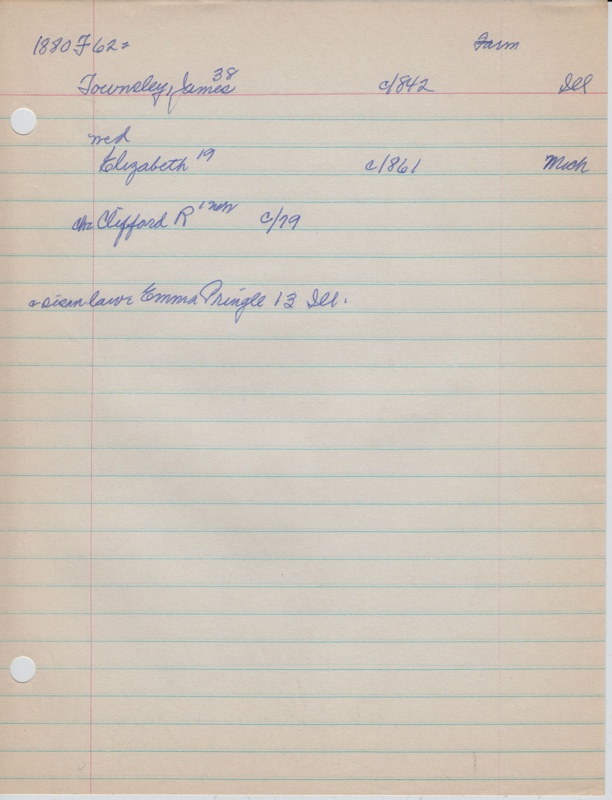 1880 F 62= Farm
Townsley, James 38 c/842 Ill
md
Elizabeth 19 c/861 Mich
ch= Clifford R 1 mon c/79
+ sis in law= Emma Pringle 13 Ill.